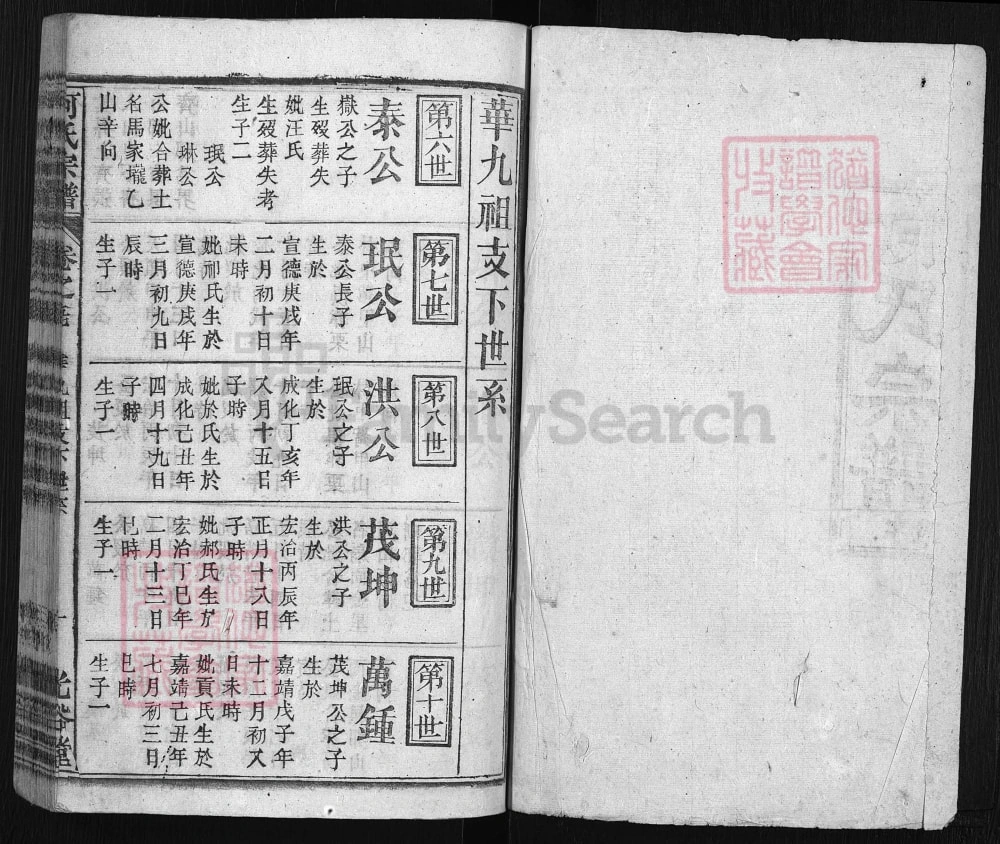 華九祖支下世系
第六世
泰公
獄公之子
生歿葬失
妣汪氏
生歿葬失考
生子二
珉公
琳公
公妣合葬土
名馬家壠乙
山辛向
第七世
珉公
泰公長子
生於
宣德庚戌年
二月初十日
未時
妣祁氏生於
宣德庚戌年
三月初九日
辰時
生子一
第八世
洪公
珉公之子
生於
成化丁亥年
八月十五日
子時
妣於氏生於
成化己丑年
四月十九日
子時
生子一
第九世
茂坤
洪公之子
生於
宏治丙辰年
正月十八日
子時
妣郝氏生於
宏治丁巳年
二月十三日
巳時
生子一
第十世
萬鍾
茂坤公之子
生於
嘉靖戊子年
十二月初八
日未時
妣貢氏生於
嘉靖己丑年
七月初三日
巳時
生子一
何氏宗譜
FamilySearch